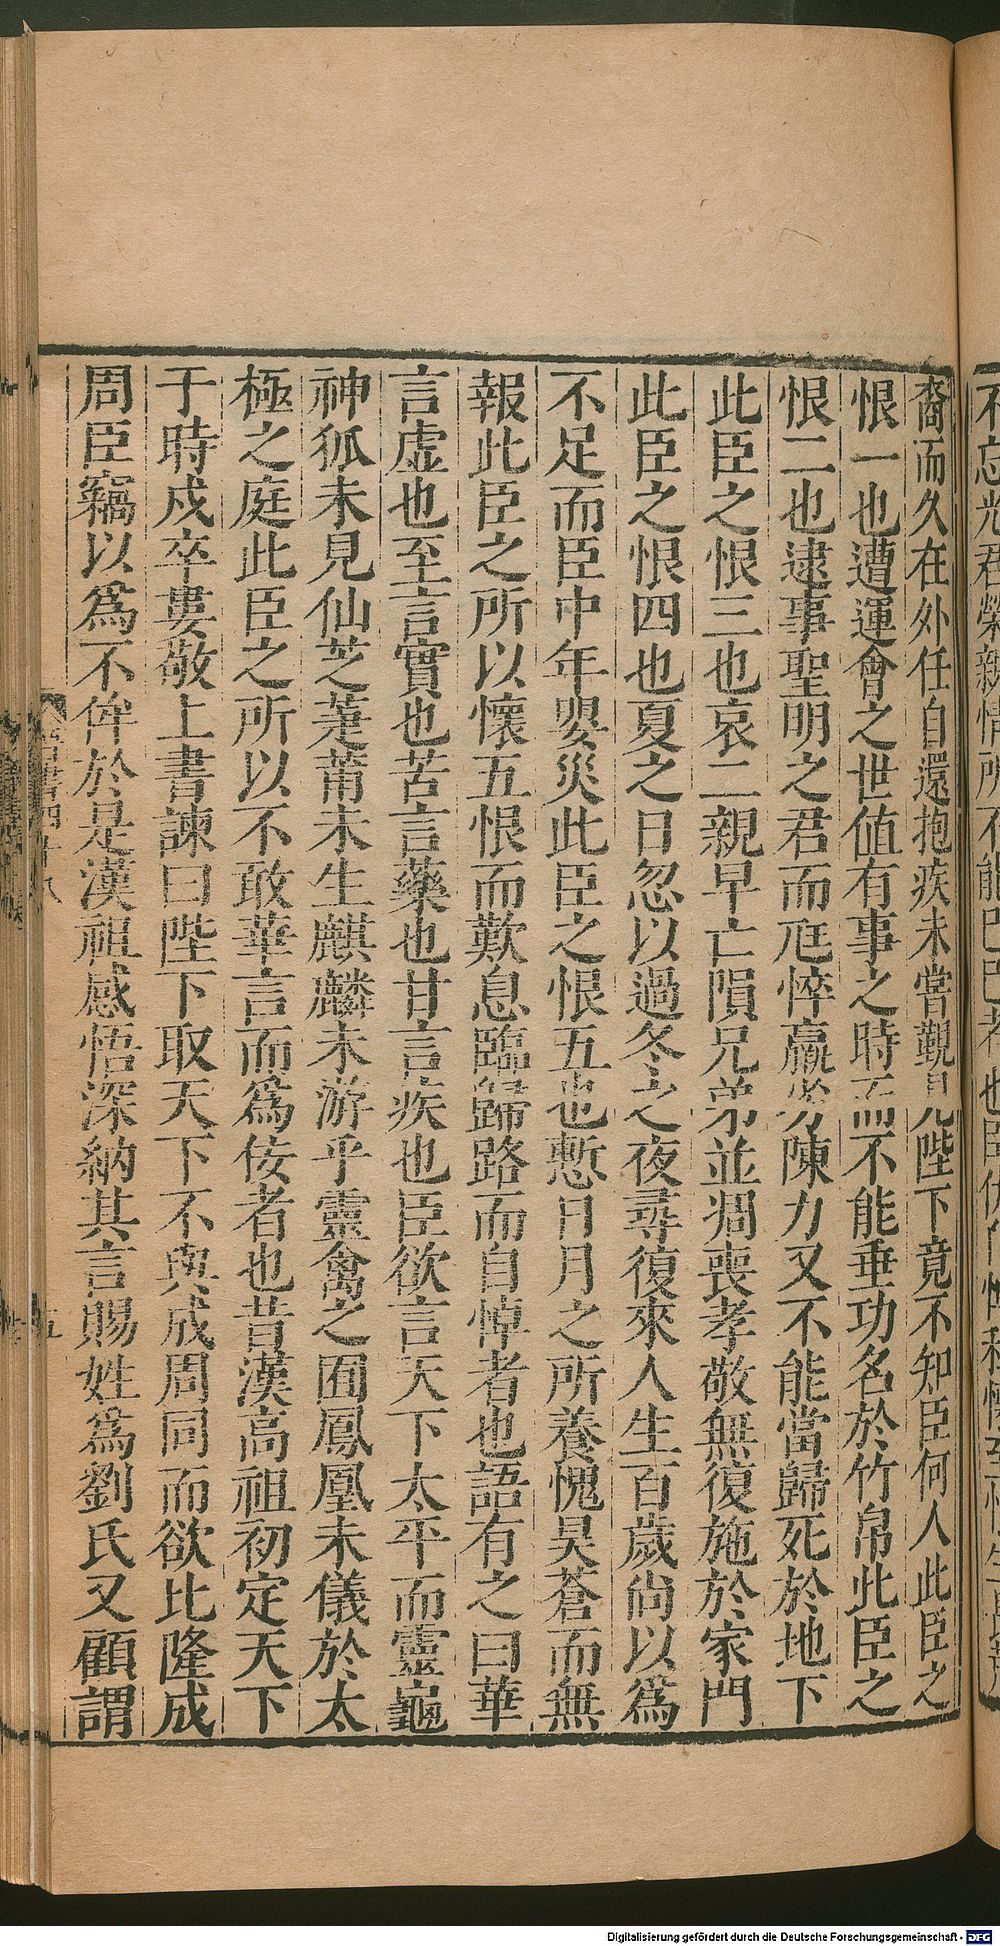 裔而久在外任自還抱疾未嘗覲見陛下竟不知臣何人此臣之
恨一也遭運會之世值有事之時而不能垂功名於竹帛此臣之
恨二也逮事聖明之君而尫悴羸劣陳力又不能當歸死於地下
此臣之恨三也哀二親早亡隕兄弟並凋喪孝敬無復施於家門
此臣之恨四也夏之日忽以過冬之夜尋復來人生百歲尚以爲
不足而臣中年嬰災此臣之恨五也慙日月之所養愧昊蒼而無
報此臣之所以懷五恨而歎息臨歸路而自悼者也語有之曰華
言虛也至言實也苦言藥也甘言疾也臣欲言天下太平而靈龜
神狐未見仙芝萐莆未生麒麟未游乎靈禽之囿鳳凰未儀於太
極之庭此臣之所以不敢華言而爲佞者也昔漢高祖初定天下
于時戍卒婁敬上書諫曰陛下取天下不與成周同而欲比隆成
周臣竊以爲不侔於是漢祖感悟深納其言賜姓爲劉氏又顧謂
五
Digitalisierung gefördert durch die Deutsche Forschungsgemeinschaft - DFG